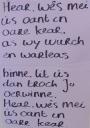 Hear, wês mei
ús oant in
oare kear.
as wy wurch
en warleas
binne. Lit ús
dan troch Jo
oerwinne.
Hear, wês mei
ús oant in
oare kear